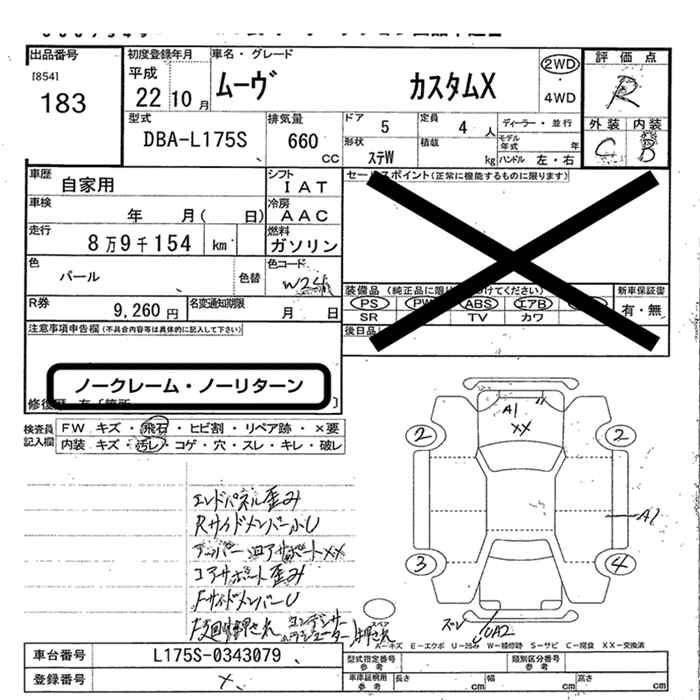 出品番号
[854]
183
初度登録年月
平成
22 10 月
車名・グレード
ムーヴ カスタムX
2WD
4WD
評価点
R
外装 内装
C B
型式
DBA-L175S
排気量
660
CC
ドア
5
定員
4 人
形状
ステW
積載
kg
ディーラー・並行
モデル年式 年
ハンドル 左・右
車歴
自家用
シフト
IAT
車検
年 月( 日)
冷房
AAC
走行
8万9千154 km
燃料
ガソリン
色
パール
色替
色コード
W24
R券
9,260 円
名変通知期限
月 日
セールスポイント(正常に機能するものに限ります)
装備品 (純正品に限り けてください)
PS PW ABS エアB
SR TV カワ
新車保証書
有・無
後日品
注意事項申告欄(不具合内容等は具体的に記入して下さい)
ノークレーム・ノーリターン
検査員
記入欄
FW キズ・飛石・ヒビ割・リペア跡・×要
内装 キズ・汚レ・コゲ・穴・スレ・キレ・破レ
エンドパネル歪み
Rサイドメンバー小U
アッパー コアサポートXX
コアサポート歪み
FサイドメンバーU
コンデンサー
スペア
押され
A1
XX
2
2
A1
3
4
スレ
UA2
A-キズ E-エクボ U-凹み W-補修跡 S-サビ C-腐食 XX-交換済
車台番号
L175S-0343079
登録番号
型式指定番号
参考
類別区分番号
参考
車庫証明用
参考
長さ cm
幅 cm
高さ cm